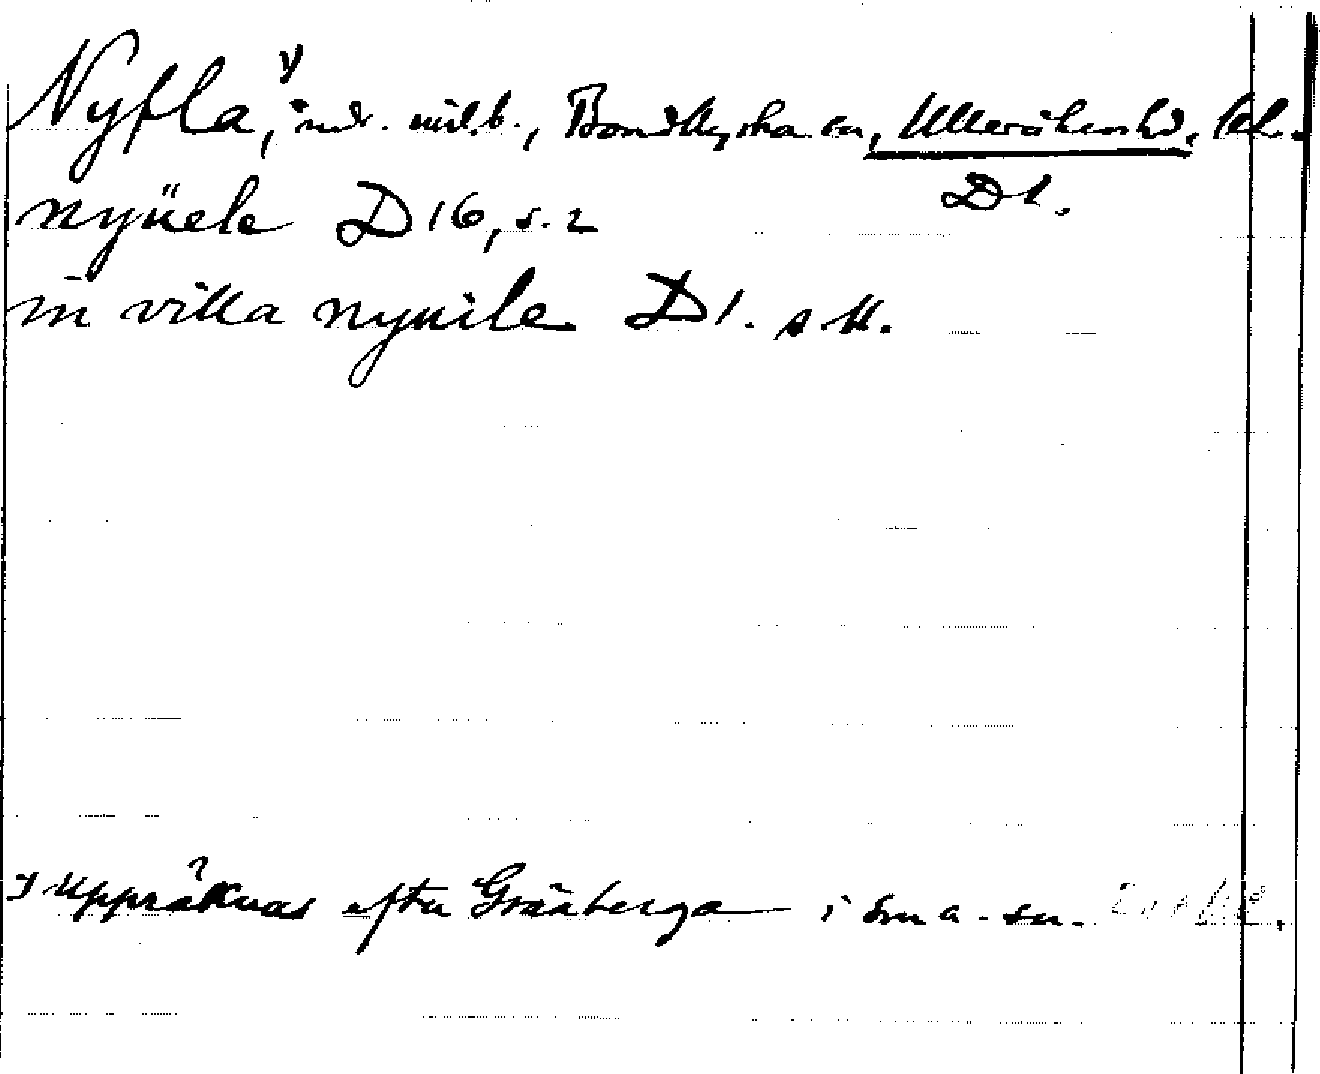 Nyfla, 1) indr. mil.b., Bondkyrka sn, Ulleråkers hd, Upl.
D1.
nyüele D16, s. 2
in villa nyuile D1. s 11.
1) Uppräknas efter Gränberga i sm a - sn.